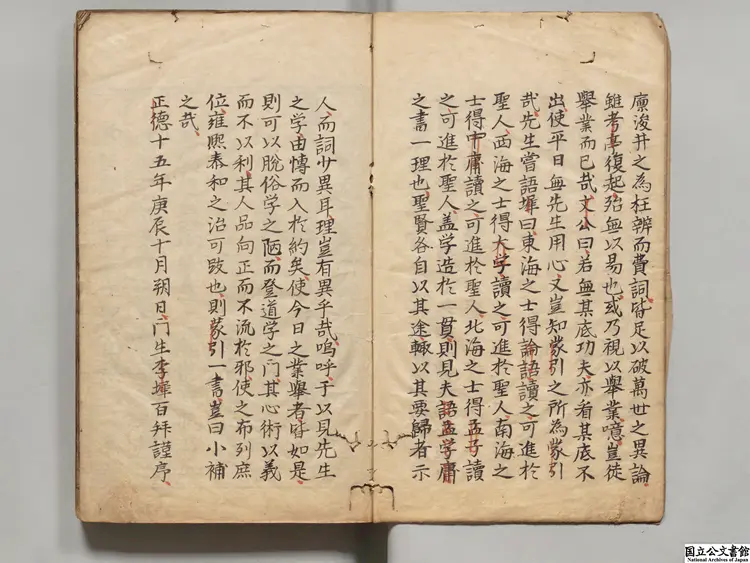 廪浚井之為枉辨而費詞皆足以破萬世之異論
雖考亭復起殆無以易也或乃視以舉業噫豈徒
舉業而已哉文公曰若無某底功夫亦看某底不
出使平日無先生用心又豈知蒙引之所為蒙引
哉先生嘗語墀曰東海之士得論語讀之可進於
聖人西海之士得大学讀之可進於聖人南海之
士得中庸讀之可進於聖人北海之士得孟子讀
之可進於聖人盖学造於一貫則見夫語孟学庸
之書一理也聖賢各自以其途轍以其要歸者示
人而詞少異耳理豈有異乎哉嗚呼于以見先生
之学由博而入於約矣使今日之業舉者皆如是
則可以脫俗学之陋而登道学之门其心術以義
而不以利其人品向正而不流於邪使之布列庶
位雍熙泰和之治可致也則蒙引一書豈曰小補
之哉
正德十五年庚辰十月朔日门生李墀百拜謹序
国立公文書館
National Archives of Japan